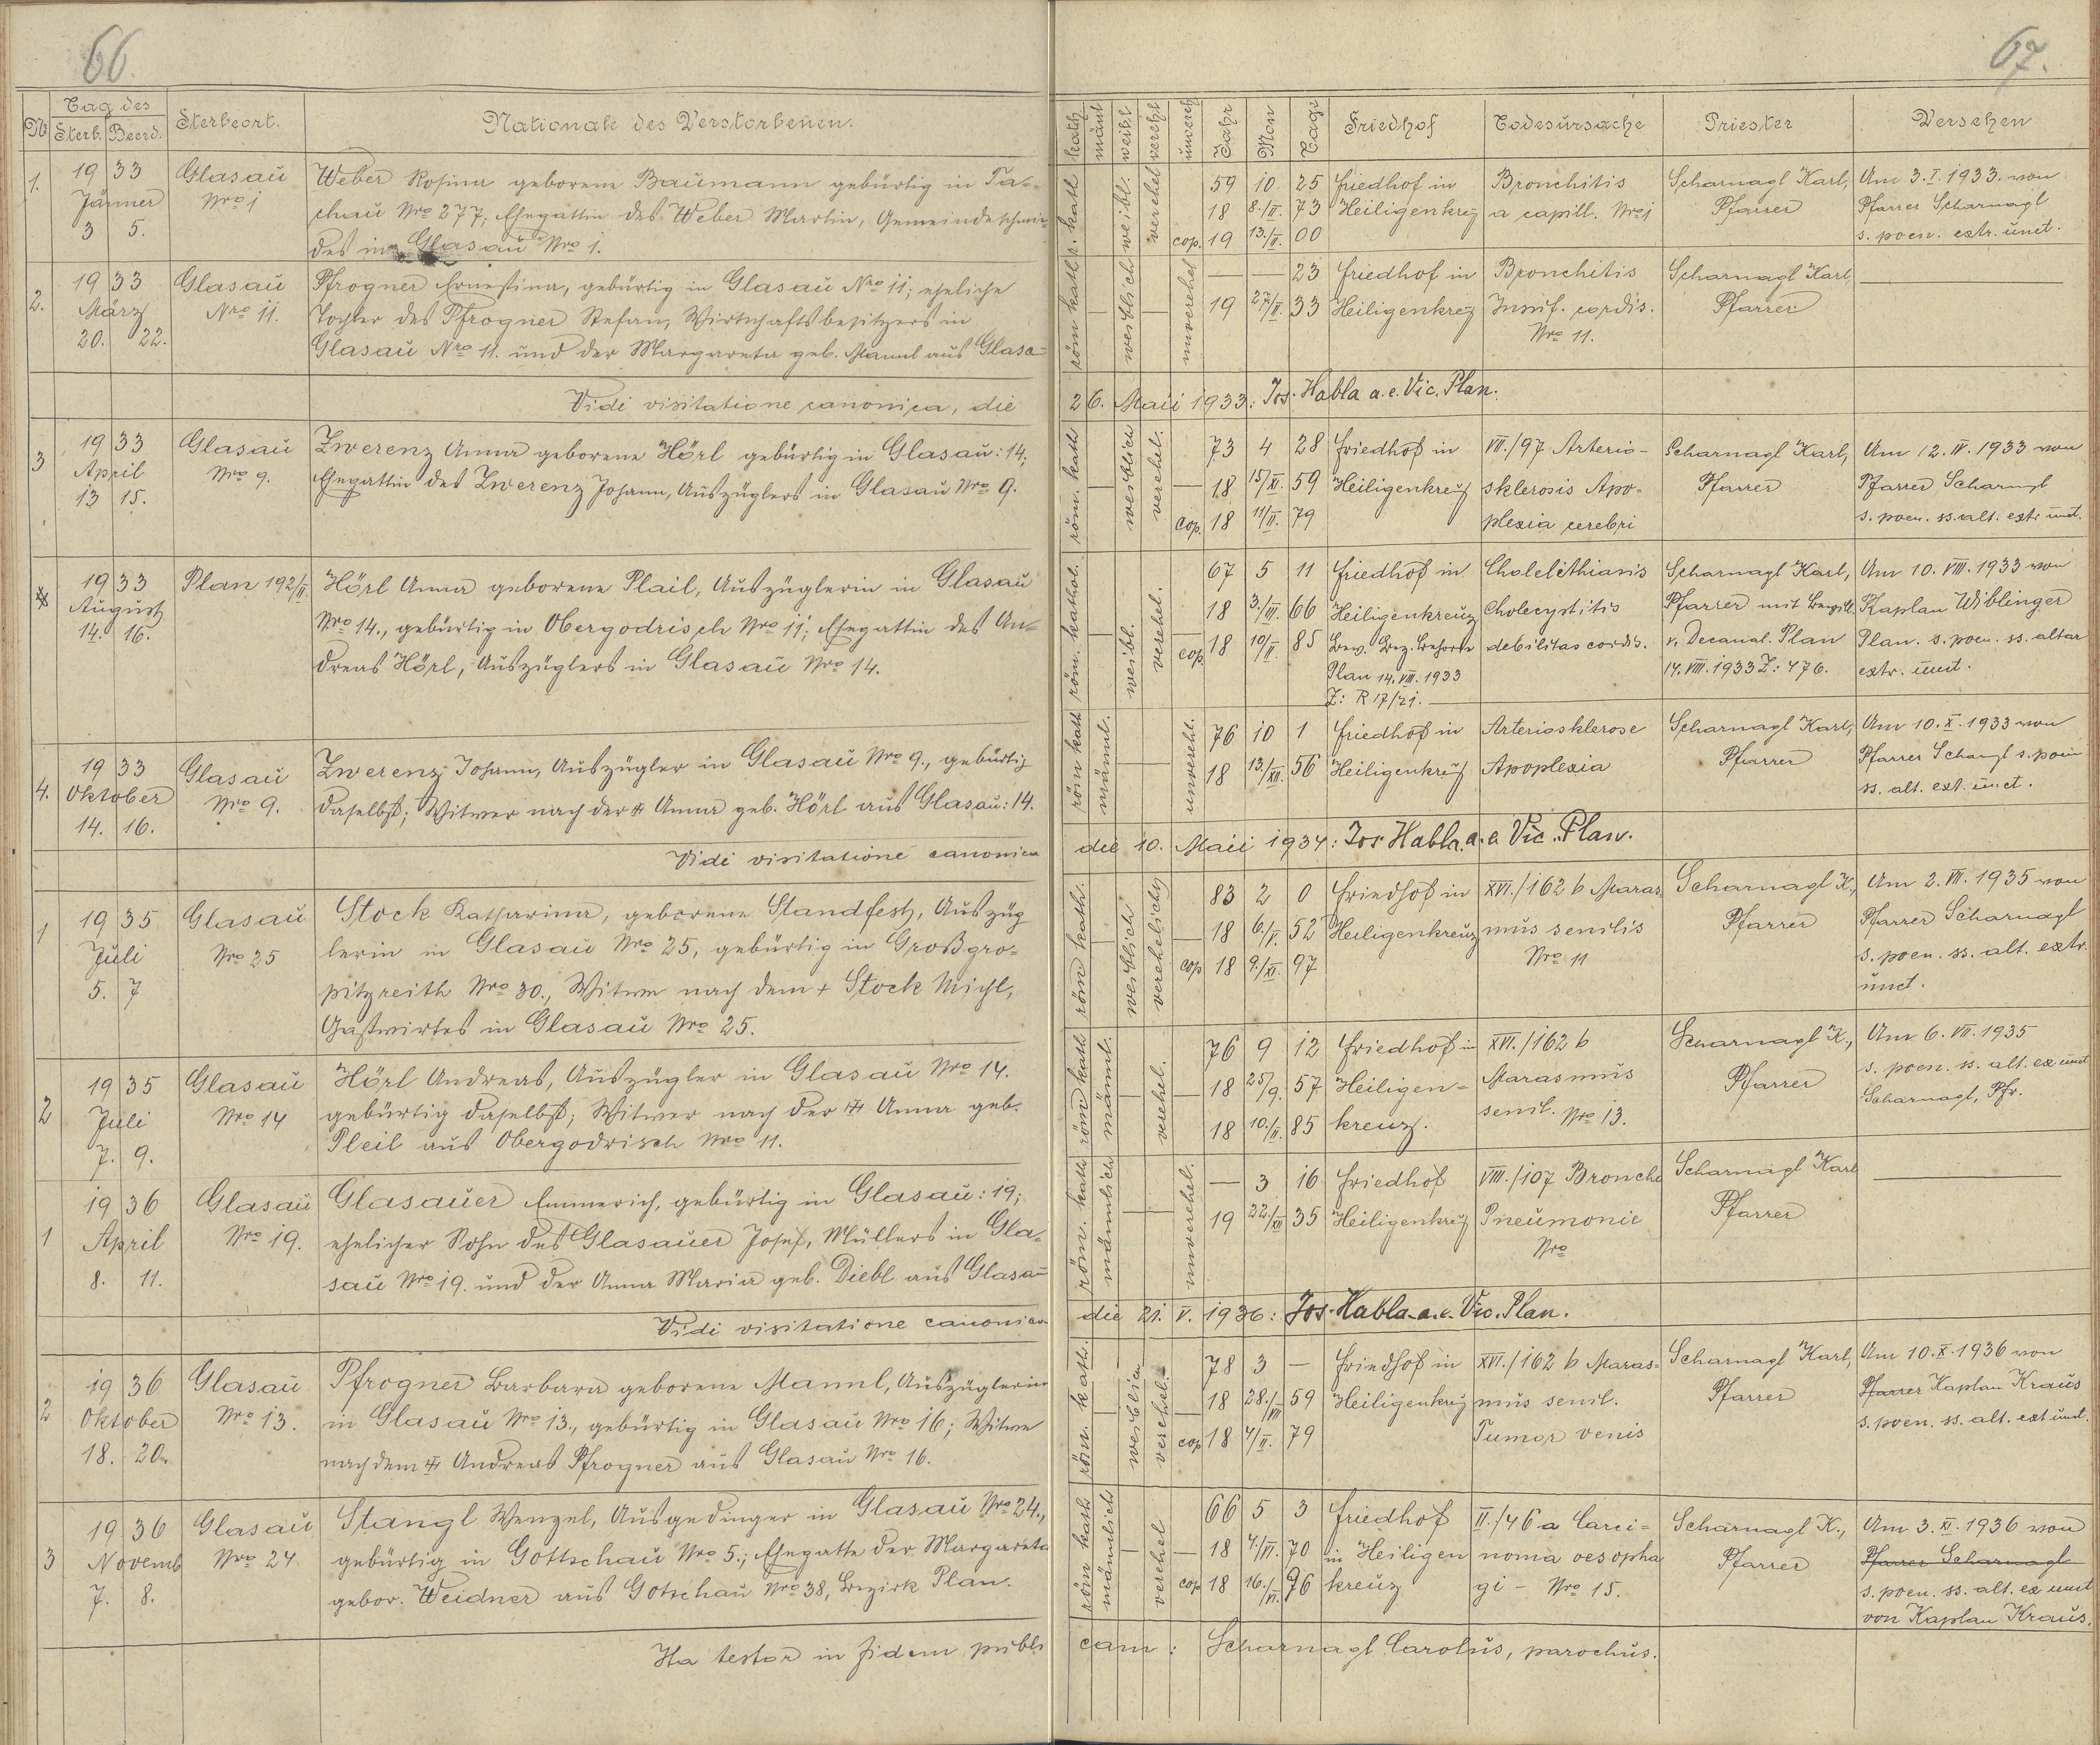 66.
Tag des
No Sterb. Beerd. Sterbeort. Nationale des Verstorbenen.
1. 19 33 Glasau Weber Rosina geborene Baumann gebürtig in Ta-
Jänner Nro 1 chau Nro 277; Ehegattin des Weber Martin, Gemeindeschmie-
3 5. des in Glasau Nro 1.
2. 19 33 Glasau Pfrogner Ernestina, gebürtig in Glasau Nro 11; eheliche
März Nro 11. Tochter des Pfrogner Stefan, Wirtschaftsbesitzers in
20. 22. Glasau Nro 11. und der Margareta geb. Mannl aus Glasa=
Vidi visitatione canonica, die
3 19 33 Glasau Zwerenz Anna geborene Hörl gebürtig in Glasau: 14,
April Nro 9. Ehegattin des Zwerenz Johann, Auszüglers in Glasau Nro 9.
13 15.
19 33 Plan 192/II Hörl Anna geborene Plail, Auszüglerin in Glasau
August Nro 14., gebürtig in Obergodrisch Nro 11; Ehegattin des An-
14. 16. dreas Hörl, Auszüglers in Glasau Nro 14.
4. 19 33 Glasau Zwerenz Johann, Auszügler in Glasau Nro 9., gebürtig
Oktober Nro 9. daselbst; Witwer nach der Anna geb. Hörl aus Glasau: 14.
14. 16.
Vidi visitatione canonica
1 19 35 Glasau Stock Katharina, geborene Standfest, Auszüg
Juli Nro 25 lerin in Glasau Nro 25, gebürtig in Großgro-
5. 7 pitzreith Nro 30., Witwe nach dem + Stock Michl,
Gastwirtes in Glasau Nro 25.
2 19 35 Glasau Hörl Andreas, Auszügler in Glasau Nro 14.
Juli Nro 14 gebürtig daselbst; Witwer nach der Anna geb.
7. 9. Pleil aus Obergodrisch Nro 11.
1 19 36 Glasau Glasauer Emmerich, gebürtig in Glasau: 19;
April Nro 19. ehelicher Sohn des Glasauer Josef, Müllers in Gla-
8. 11. sau Nro 19. und der Anna Maria geb. Diebl aus Glasau
Vidi visitatione canonica
2 19 36 Glasau Pfrogner Barbara geborene Mannl, Auszüglerin
Oktober Nro 13. in Glasau Nro 13., gebürtig in Glasau Nro 16; Witwe
18. 20. nach dem Andreas Pfrogner aus Glasau Nro 16.
3 19 36 Glasau Stangl Wenzel, Ausgedinger in Glasau Nro 24.,
Novemb Nro 24 gebürtig in Gottschau Nro 5.; Ehegatte der Margareta
7. 8. gebor. Weidner aus Gotschau Nro 38, Bezirk Plan.
Ita testor in fidem publi
67.
kath männl weibl verehl unvereh Jahr Mon Tage Friedhof Todesursache Priester Versehen
r. kath weibl. verehel 59 10 25 Friedhof in Bronchitis Scharnagl Karl, Am 3. I. 1933. von
18 8./II. 73 Heiligenkrez a capill. Nro 1 Pfarrer Pfarrer Scharnagl
cop. 19 13./II. 00 s. poen. extr. unct.
röm kath weiblich unverehel — — 23 Friedhof in Bronchitis Scharnagl Karl,
19 27/II. 33 Heiligenkrez Insuf. cordis. Pfarrer
Nro 11.
26. Maii 1933: Jos. Habla a. e. Vic. Plan.
röm. kath weiblich verehel. 73 4 28 Friedhof in VII./97 Arterio- Scharnagl Karl, Am 12. IV. 1933 von
18 15/XI. 59 Heiligenkreuz sklerosis Apo- Pfarrer Pfarrer Scharngl
cop. 18 11/II. 79 plexia cerebri s. poen. ss. alt. extr unct.
röm. kathol. weibl. verehel. 67 5 11 Friedhof in Cholelithiasis Scharnagl Karl, Am 10. VIII. 1933 von
18 3./III. 66 Heiligenkreuz Cholecystitis Pfarrer mit Bewill. Kaplan Wiblinger
cop. 18 10/II. 85 Bew. Bez. Behorde debilitas cordis. v. Decanal. Plan Plan. s. poen. ss. altar
Plan 14. VIII. 1933 14. VIII. 1933 Z: 476. extr. unct.
Z: R 17/21.
röm kath männl. unvereht. 76 10 1 Friedhof in Arteriosklerose Scharnagl Karl, Am 10. X. 1933 von
18 13./XII. 56 Heiligenkreuz Apoplexia Pfarrer Pfarrer Scharngl s. poen
ss. alt. ext. unct.
die 10. Maii 1934: Jos Habla. a. e Vic. Plan.
röm kath. weiblich verehelicht 83 2 0 Friedhof in XVI./162 b Maras- Scharnagl K., Am 2. VII. 1935 von
18 6./V. 52 Heiligenkreuz mus senilis Pfarrer Pfarrer Scharnagl
cop 18 9./XI. 97 Nro 11 s. poen. ss. alt. extr.
unct.
röm kath männl. verehel. 76 9 12 Friedhof in XVI./162 b Scharnagl K., Am 6. VII. 1935
18 25/9. 57 Heiligen- Marasmus Pfarrer s. poen. ss. alt. ex unct
18 10./II. 85 kreuz. senil. Nro 13. Scharnagl, Pfr.
röm. kath männlich unverehel. — 3 16 Friedhof VIII./107 Broncho Scharnagl Karl
19 22./XII 35 Heiligenkreuz Pneumonie Pfarrer
Nro
die 21. V. 1936: Jos. Habla a. e. Vic. Plan.
röm. kath. weiblich verehel. 78 3 — Friedhof in XVI./162 b Maras- Scharnagl Karl, Am 10. X. 1936 von
18 28./VII 59 Heiligenkreuz mus senil. Pfarrer Pfarrer Kaplan Kraus
cop 18 4/II. 79 Tumor venis s. poen. ss. alt. ext unct.
röm kath männlich verehel 66 5 3 Friedhof II./46 a Carci- Scharnagl K., Am 3. XI. 1936 von
18 4./VI. 70 in Heiligen noma oesopha Pfarrer Pfarrer Scharnagl
cop 18 16./VI. 96 kreuz gi - Nro 15. s. poen. ss. alt. ex unct
von Kaplan Kraus.
cam: Scharnagl Carolus, parochus.